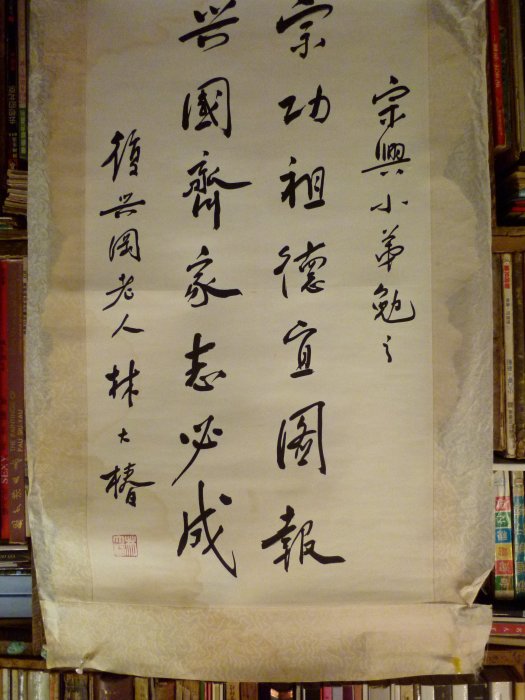 宗興小弟勉之
宗功祖德宜圖報
興國齊家志必成
復興岡老人林大椿